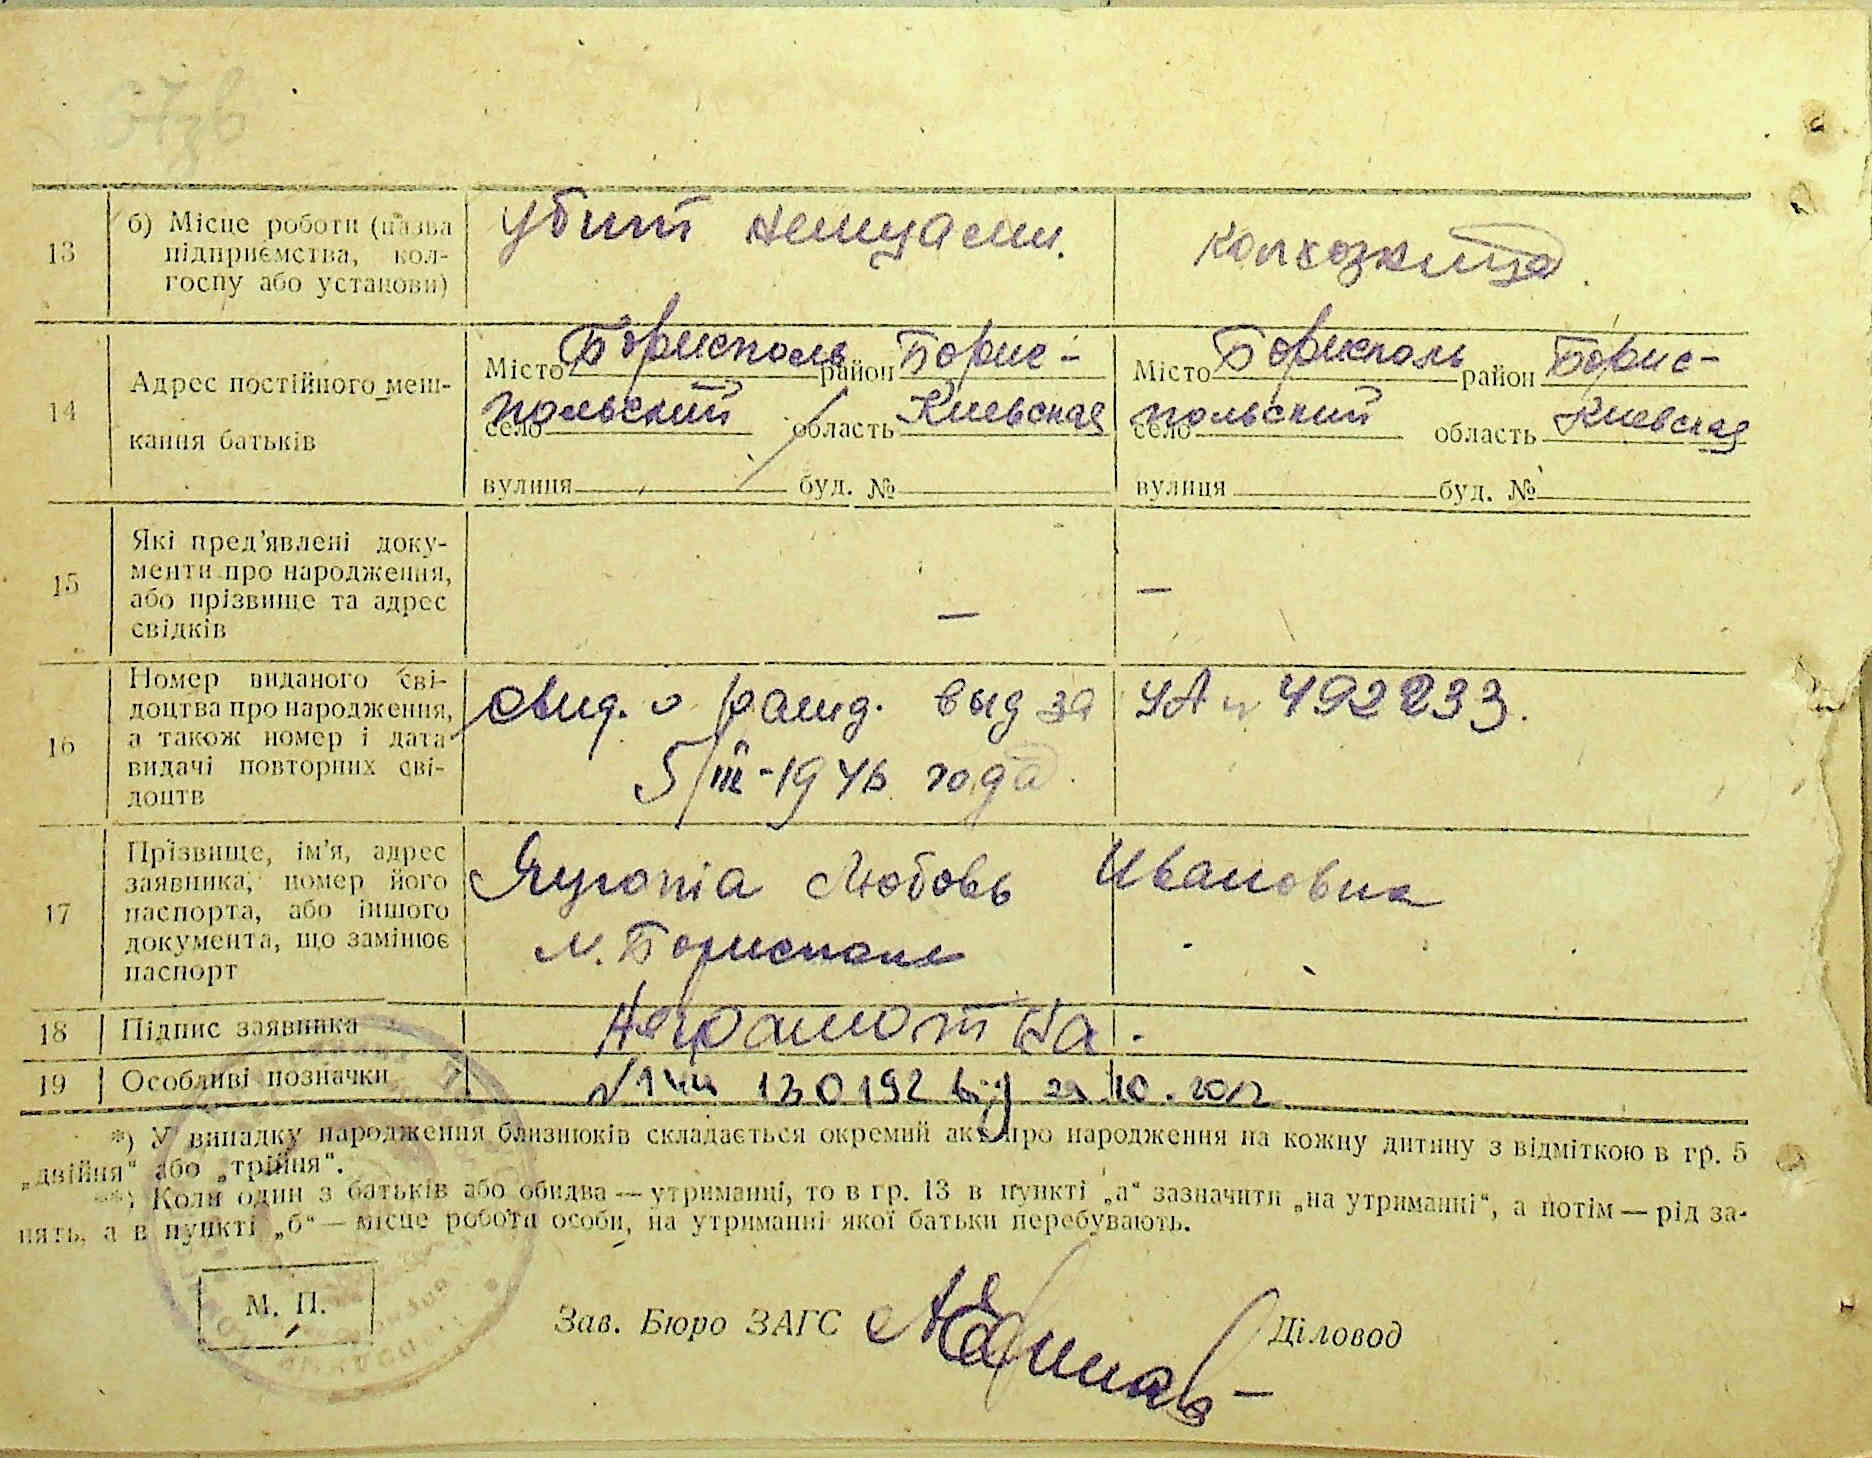 13
б) Місце роботи (назва
підприємства, кол-
госпу або установи)
убит немцами.
колхозница.
14
Адрес постійного меш-
кання батьків
Місто Борисполь район Борис-
польский
село область Киевская
вулиця буд. №
Місто Борисполь район Борис-
польский
село область Киевская
вулиця буд. №
15
Які пред'явлені доку-
менти про народження,
або прізвище та адрес
свідків
—
—
16
Номер виданого сві-
доцтва про народження,
а також номер і дата
видачі повторних сві-
доцтв
свид. о рожд. выд за
5/III-1946 года.
УА № 492233.
17
Прізвище, ім'я, адрес
заявника, номер його
паспорта, або іншого
документа, що замінює
паспорт
Любовь Ивановна
м. Борисполь
18
Підпис заявника
Неграмотна.
19
Особливі позначки
130192 від 29.10.2012
*) У випадку народження близнюків складається окремий акт про народження на кожну дитину з відміткою в гр. 5
„двійня" або „трійня".
**) Коли один з батьків або обидва — утриманці, то в гр. 13 в пункті „а" зазначити „на утриманні", а потім — рід за-
нять, а в пункті „б" — місце роботи особи, на утриманні якої батьки перебувають.
М. П.
Зав. Бюро ЗАГС
Діловод